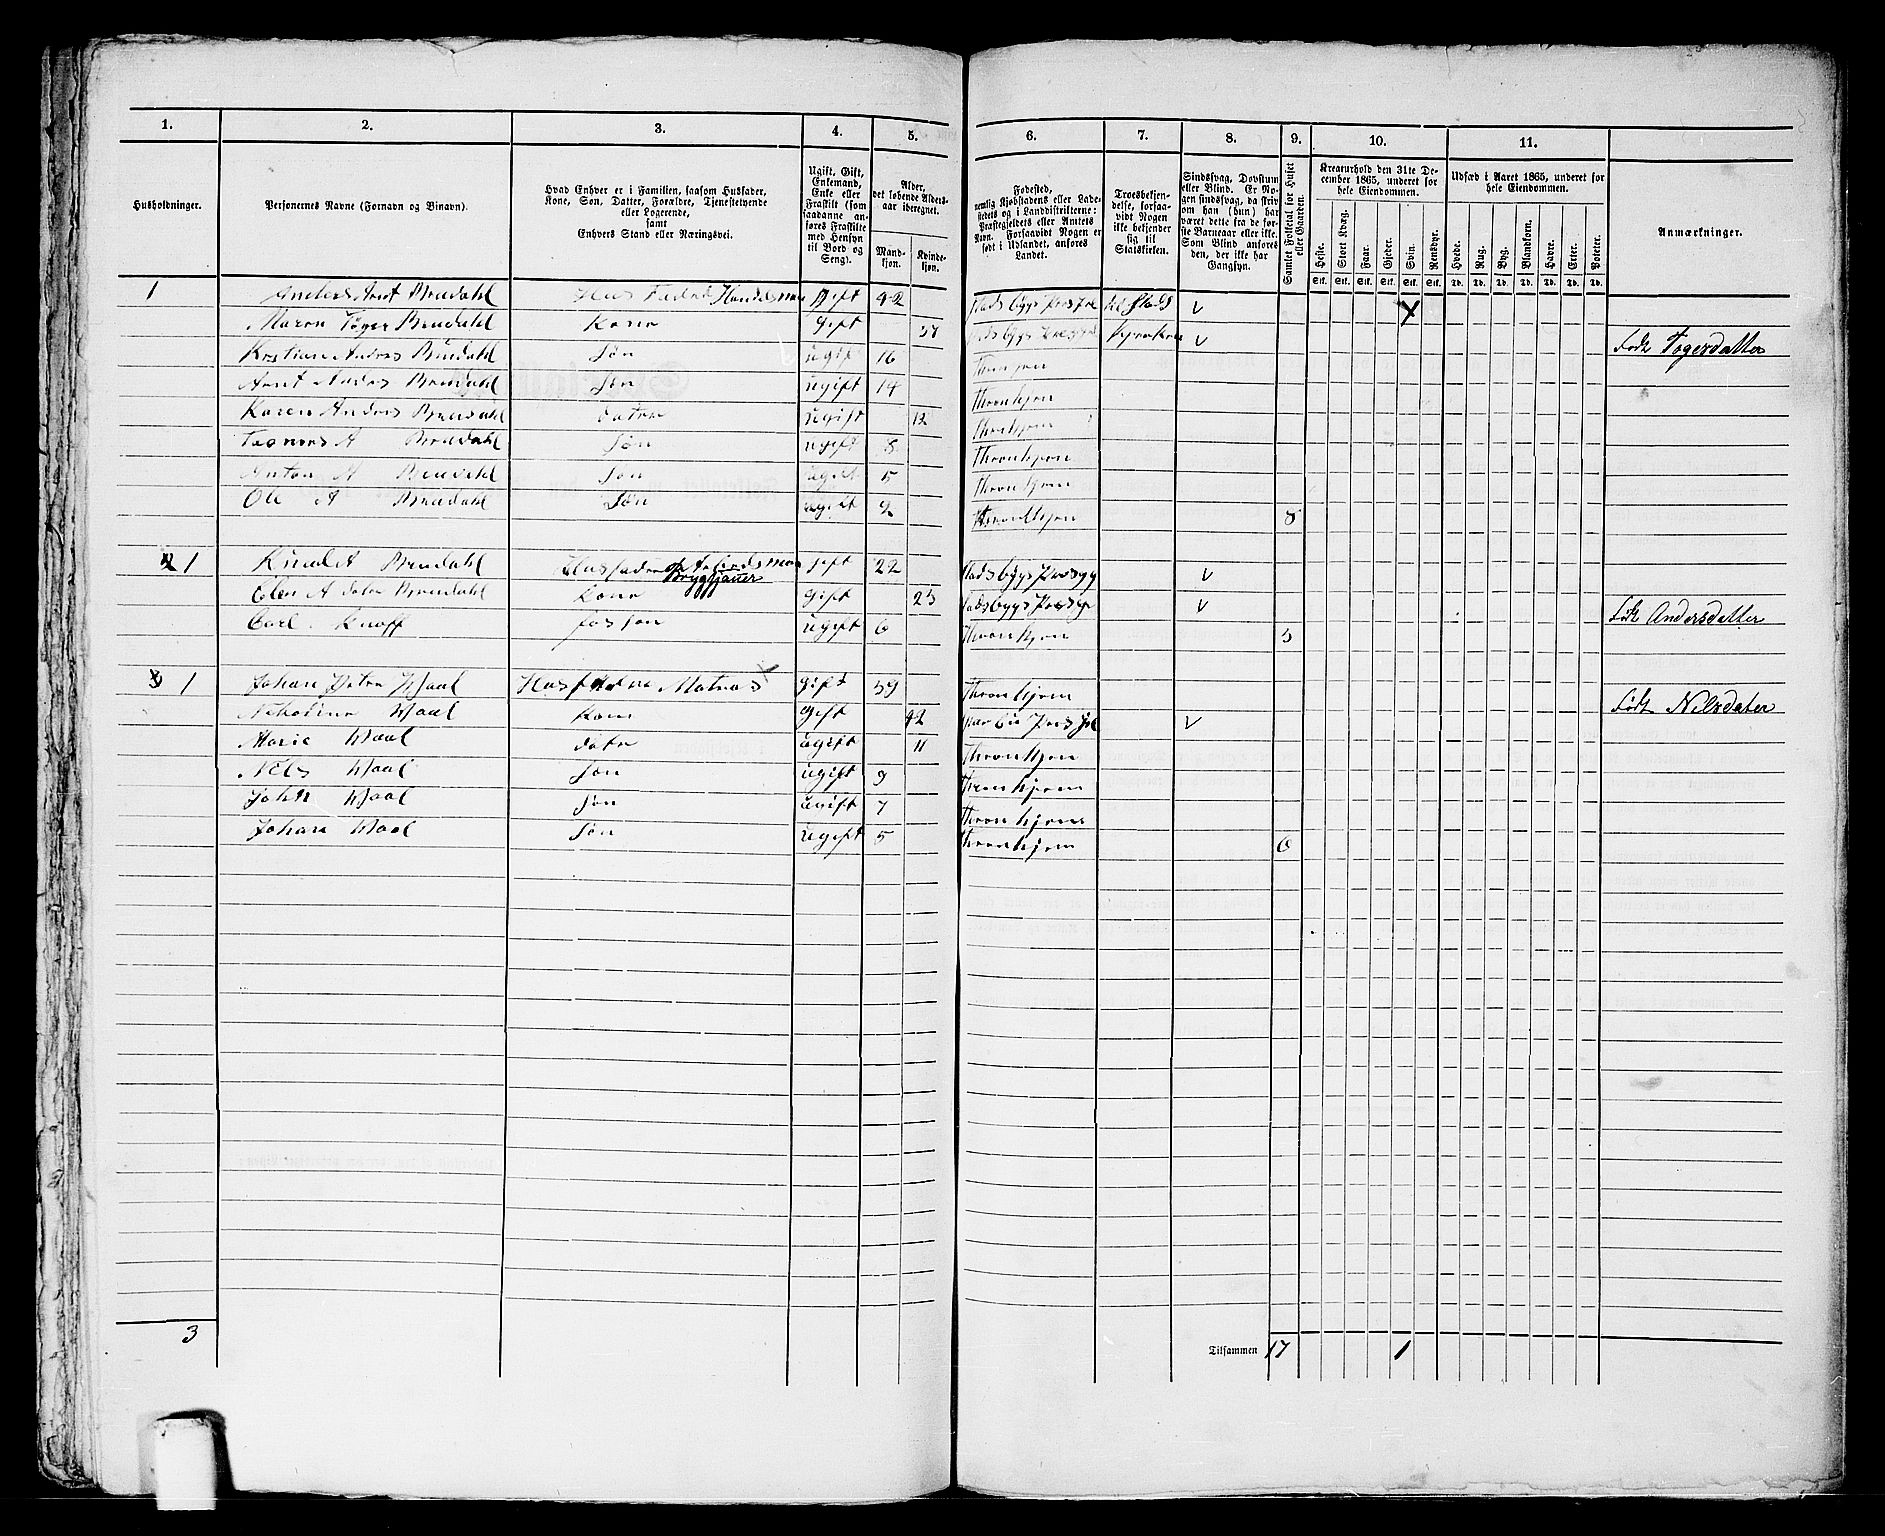 1. 2. 3. 4. 5. 6. 7. 8. 9. 10. 11.
Husholdninger.
Personernes Navne (Fornavn og Binavn).
Hvad Enhver er i Familien, saasom Husfader,
Kone, Søn, Datter, Forældre, Tjenestetyende
eller Logerende,
samt
Enhvers Stand eller Næringsvei.
Ugift, Gift,
Enkemand,
Enke eller
Fraskilt (som
saadanne an-
føres Fraskilte
med Hensyn
til Bord og
Seng).
Alder,
det løbende Alders-
aar iberegnet.
Mand-
kjøn.
Kvinde-
kjøn.
Fødested,
nemlig Kjøbstadens eller Lade-
stedets og i Landdistrikterne:
Præstegjeldets eller Amtets
Navn. Forsaavidt Nogen er
født i Udlandet, anføres
Landet.
Troesbekjen-
delse, forsaa-
vidt Nogen
ikke bekjender
sig til
Statskirken.
Sindssvag, Døvstum
eller Blind. Er No-
gen sindssvag, da skriv
om han (hun) har
været dette fra de før-
ste Barneaar eller ikke.
Som Blind anføres
den, der ikke har
Gangsyn.
Samlet Folketal for Huset
eller Gaarden.
Kreaturhold den 31te De-
cember 1865, underet for
hele Eiendommen.
Heste. Stort Kvæg. Faar. Gjeder. Svin. Rensdyr.
Stk. Stk. Stk. Stk. Stk. Stk.
Udsæd i Aaret 1865, underet for
hele Eiendommen.
Hvede. Rug. Byg. Blandkorn. Havre. Erter. Poteter.
Td. Td. Td. Td. Td. Td. Td.
Anmærkninger.
1 Anders Arnt Brudahl Hus Fader Handelsman Gift 42
Maren Tøger Brudahl Kone Gift Født Tøgersdatter
Kristian Andras Brudahl Søn ugift 16
Arnt Andras Brudahl Søn ugift 14 Thronhjem
Karen Andras Brudahl dater ugift 12 Thronhjem
A Brudahl Søn ugift 8 Thronhjem
Anton A Brudahl Søn ugift 5 Thronhjem
Ole A Brudahl Søn ugift 2 Throndhjem 8
2 1 Knud A Brudahl Husfader Arbeidsman Bryggjauer gift 22 Stadsbygs Presgj v
Elen A dater Brudahl Kone gift 25 Stadsbygs Presgj v Født Andersdatter
Carl Knoff fos søn ugift 6 Thronhjem 3
3 1 Johan Peter Waal Husfader Matros gift 39 Thronhjem
Nikoline Waal Kone gift 42 v Født Nilsdater
Marie Waal dater ugift 11 Thronhjem
Nils Waal Søn ugift 9 Thronhjem
John Waal Søn ugift 7 Thronhjem
Johan Waal Søn ugift 5 Thronhjem 6
3 Tilsammen 17 1